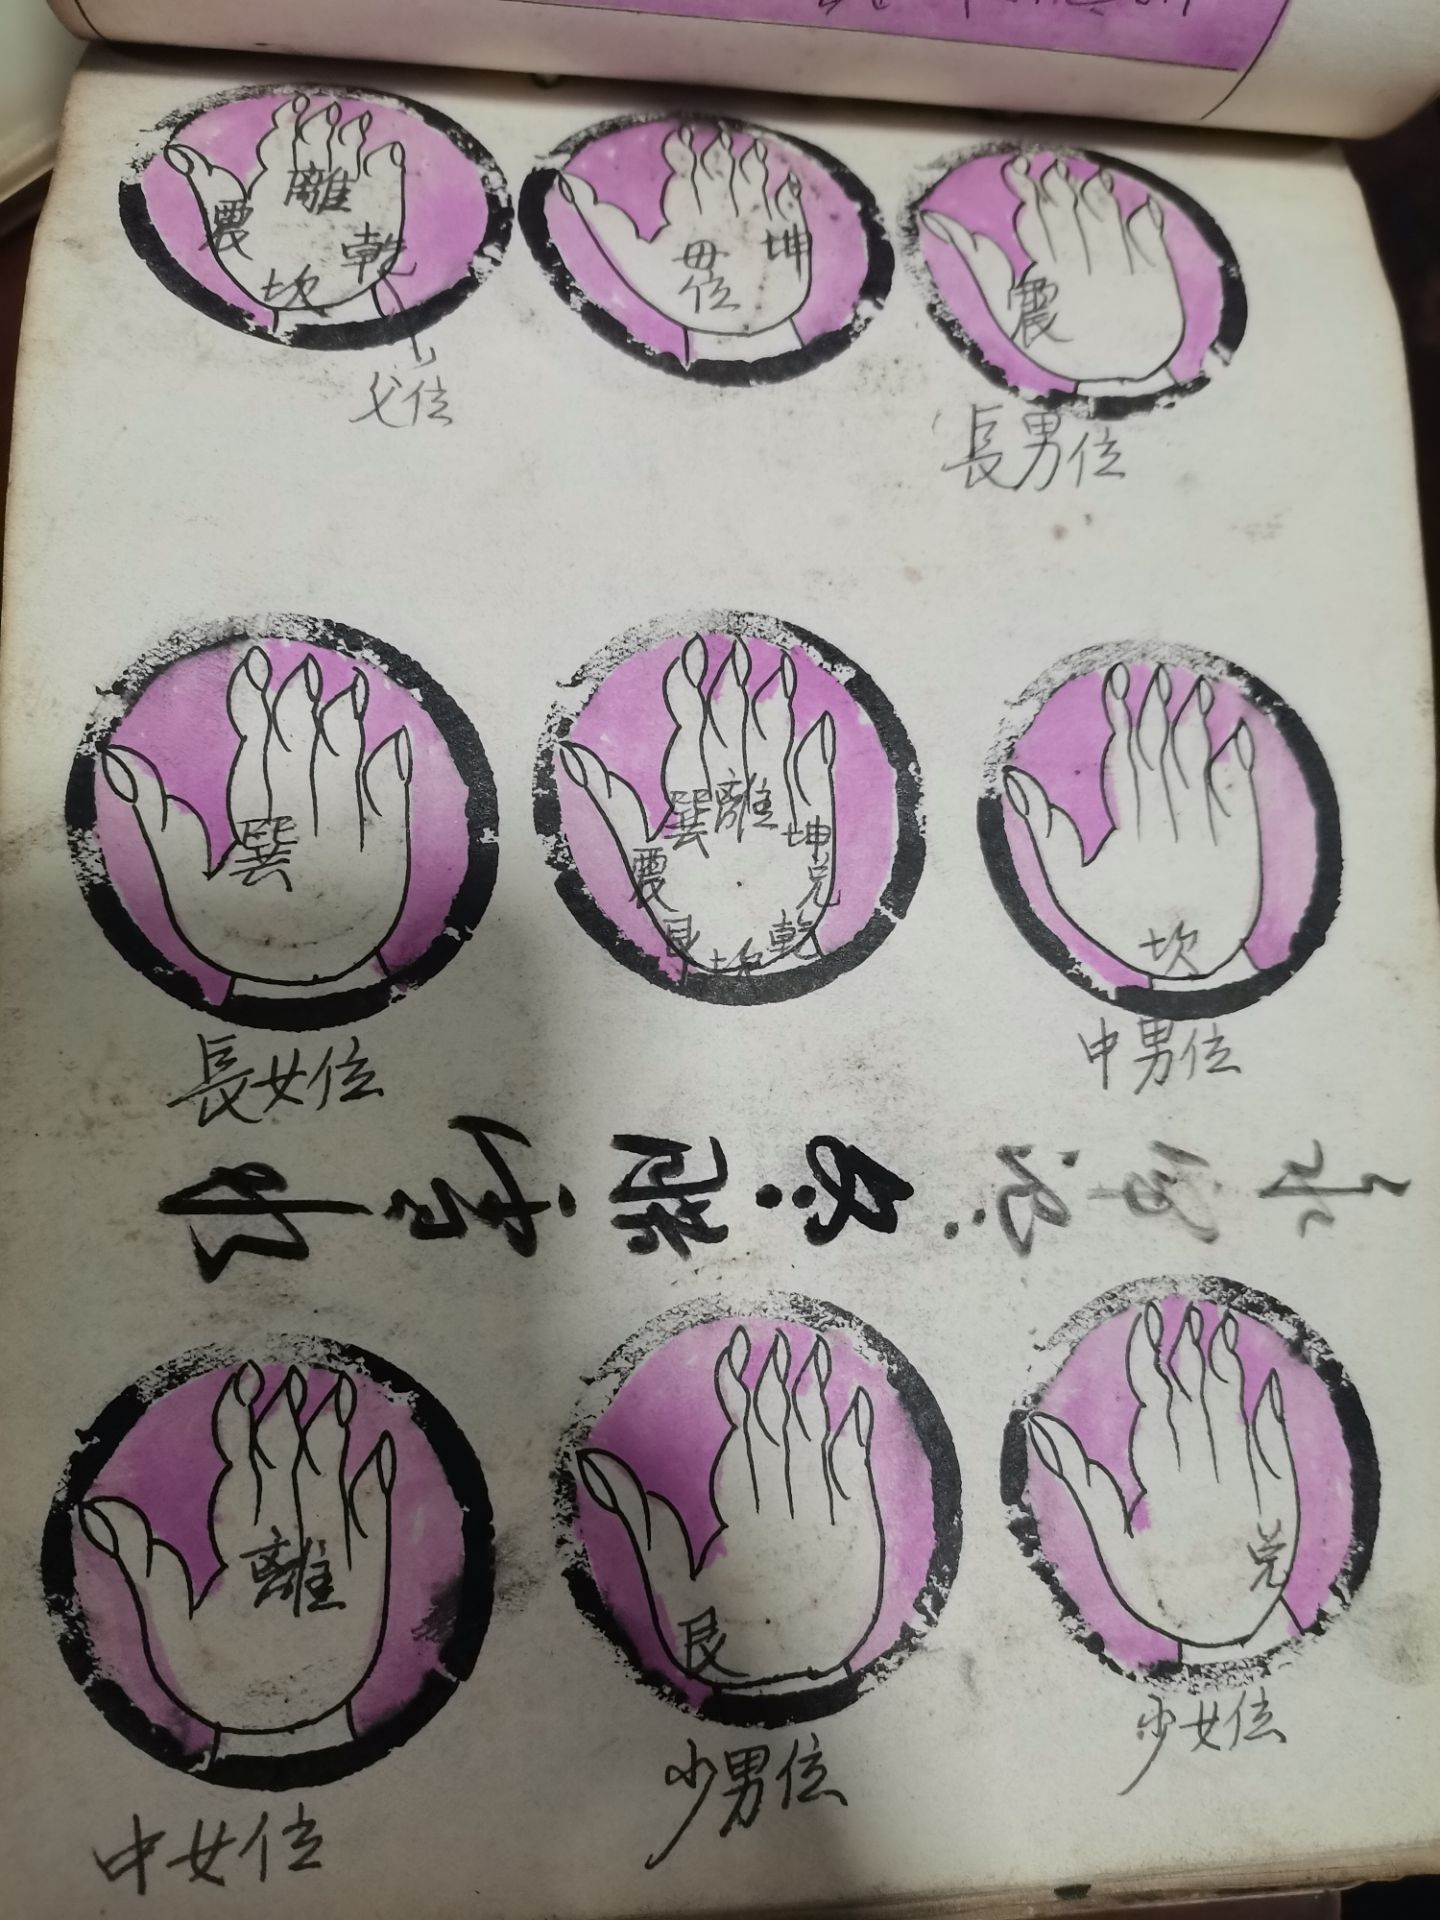 離
震
乾
坎
父位
坤
毋位
震
長男位
巽
長女位
巽離坤
震 兌
艮坎乾
坎
中男位
離
中女位
艮
少男位
兌
少女位